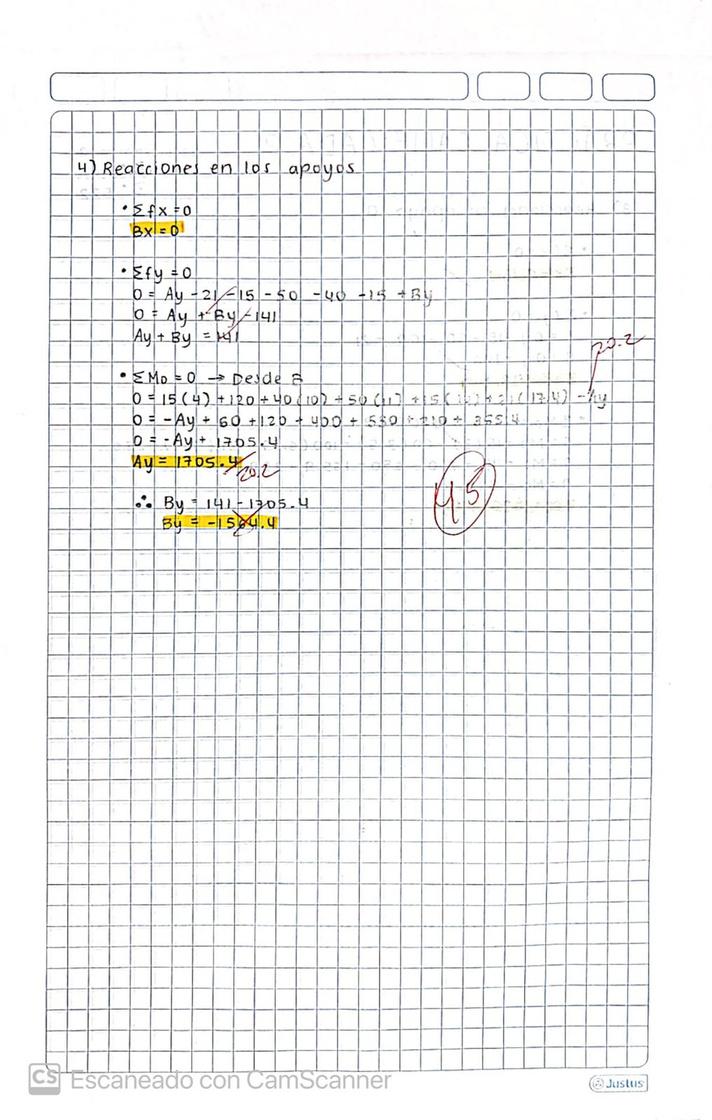 4) Reacciones en los apoyos
• Σfx = 0
Bx = 0
• Σfy = 0
0 = Ay - 21 - 15 - 50 - 40 - 15 + By
0 = Ay + By - 141
Ay + By = 141
20.2
• ΣMo = 0 → Desde B
0 = 15(4) + 120 + 40(10) + 50(11) + 15( ) + 21(17.4) - Ay
0 = -Ay + 60 + 120 + 400 + 550 + 210 + 365.4
0 = -Ay + 1705.4
Ay = 1705.4
20.2
45
∴ By = 141 - 1705.4
By = -1564.4
CS Escaneado con CamScanner
Justus